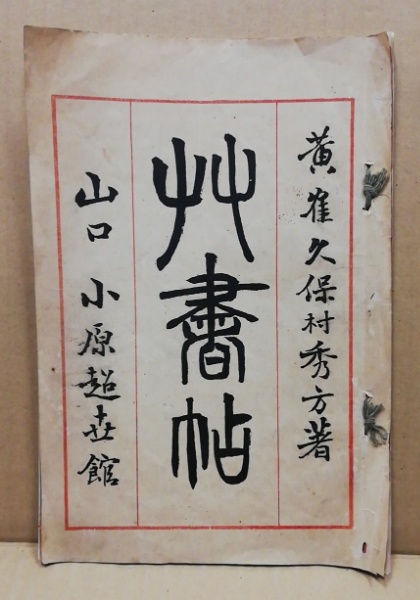 黄隺久保村秀方著
艸書帖
山口 小原超世館